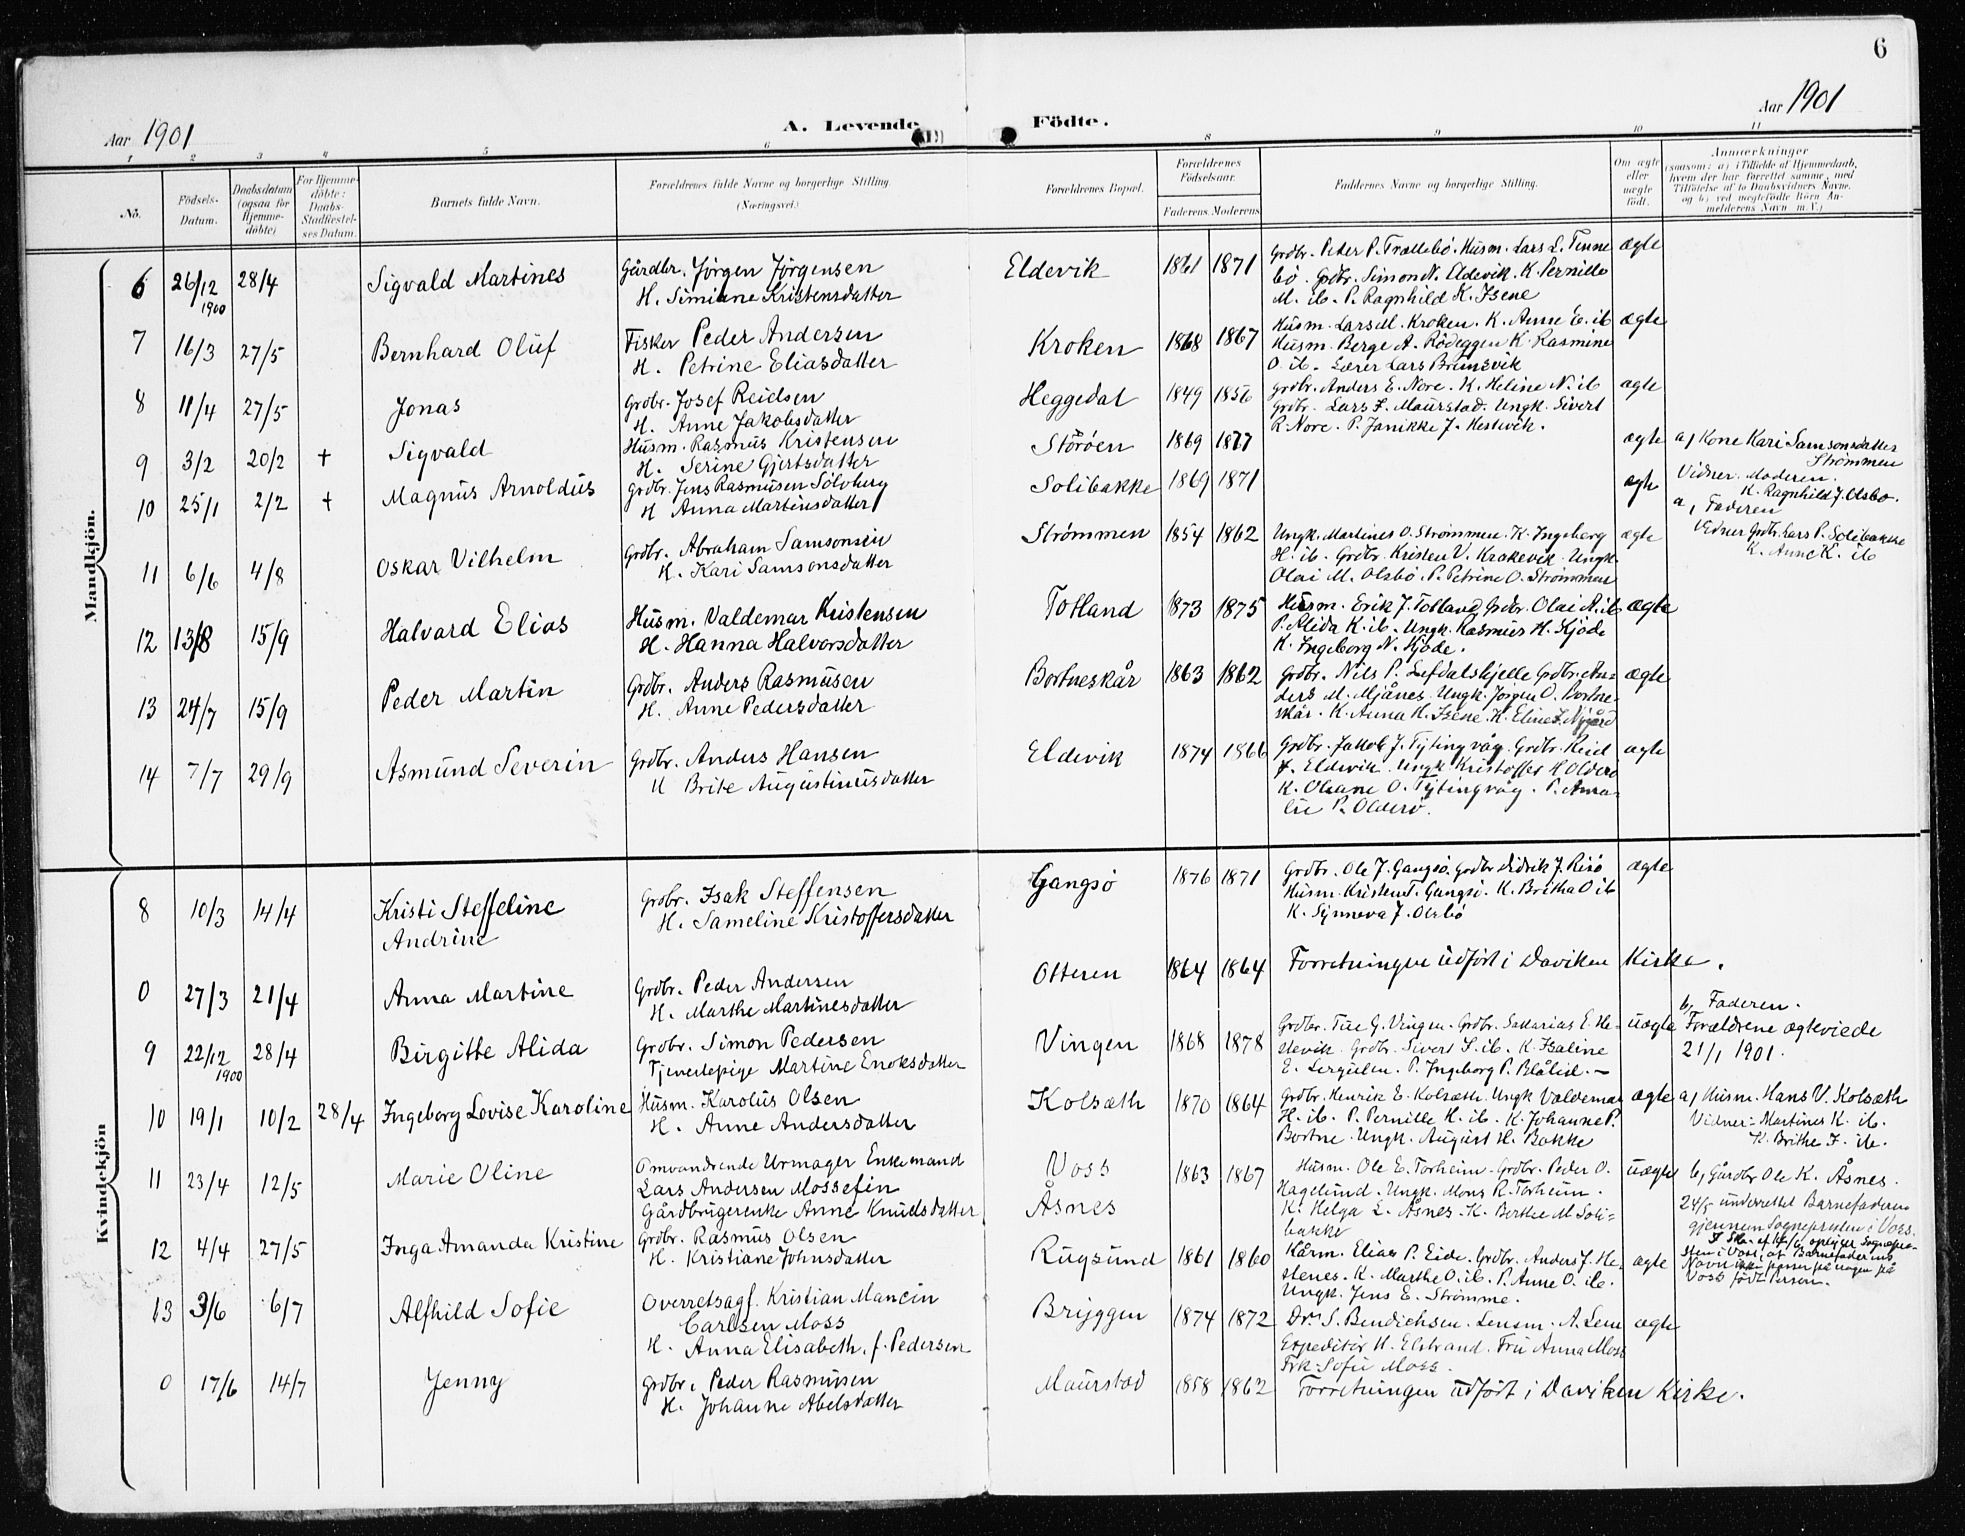 6
Aar 1901
A. Levende Födte.
Aar 1901
1 2 3 4 5 6 8 9 10 11
No.
Födsels-Datum.
Daabsdatum (ogsaa for Hjemme-döbte)
For Hjemme-döbte: Daabs-Stadfæstel-ses Datum.
Barnets fulde Navn.
Forældrenes fulde Navne og borgerlige Stilling.
(Næringsvei.)
Forældrenes Bopæl.
Forældrenes Födselsaar.
Faderens. Moderens.
Faddernes Navne og borgerlige Stilling.
Om ægte eller uægte födt.
Anmærkninger
(saasom: a) i Tilfælde af Hjemmedaab,
hvem der har forrettet samme, med
Tilföielse af to Daabsvidners Navne.
og b) ved uægtefödte Börn An-
melderens Navn m. V.)
Mandkjön.
6 26/12 1900 28/4 Sigvald Martines
Gårdbr. Jørgen Jørgensen
H. Simiane Kristensdatter
Eldevik 1861 1871
Grdbr. Peter P. Trællebö. Husm. Lars L. Tenne
bö. Grdbr. Simon N. Eldevik. K. Pernille
M. ib. P. Ragnhild K. Isene
ægte
7 16/3 27/5 Bernhard Oluf
Fisker Peder Andersen
H. Petrine Eliasdatter
Kroken 1868 1867
Husm. Lars M. Kroken. K. Anne E. ib
Husm. Berge A. Rödeggen K. Rasmine
O. ib. Lærer Lars Brunsvik
ægte
8 11/4 27/5 Jonas
Grdbr. Josef Reidsen
H. Anne Jakobsdatter
Heggedal 1849 1856
Grdbr. Anders E. Nore. K. Heline N. ib
Grdbr. Lars J. Maurstad. Ungk. Sivert
R. Nore. P. Janikke J. Hestevik.
ægte
9 3/2 20/2 + Sigvald
Husm. Rasmus Kristensen
H. Serine Gjertsdatter
Störöen 1869 1877
ægte
a, Kone Kari Samsonsdatter
Strømmen
Vidner. Moderen.
K. Ragnhild J. Olsbö.
10 25/1 2/2 + Magnus Arnoldus
Grdbr. Jens Rasmusen Sölvberg
H Anna Martinusdatter
Solibakke 1869 1871
ægte
a, Faderen
Vidner Grdbr. Lars P. Solibakke
K. Anne K. ib
11 6/6 4/8 Oskar Vilhelm
Grdbr. Abraham Samsonsen
H. Kari Samsonsdatter
Strømmen 1854 1862
Ungk. Martines O. Strømmen. K. Ingeborg
H. ib. Grdbr. Kristen V. Krakevik. Ungk.
Olai M. Olsbö. P. Petrine O. Strømmen
ægte
12 13/8 15/9 Halvard Elias
Husm. Valdemar Kristensen
H. Hanna Halvorsdatter
Totland 1873 1875
Husm. Erik J. Totland Grdbr. Olai A. ib
P. Alida K. ib. Ungk. Rasmus H. Hjöde
K. Ingeborg N. Hjöde.
ægte
13 24/7 15/9 Peder Martin
Grdbr. Anders Rasmusen
H. Anne Pedersdatter
Bortneskår 1863 1862
Grdbr. Nils P. Lefdalshjelle Grdbr. An-
ders M. Mjånes. Ungk. Jørgen O. Bortne-
skår. K. Anna H. Isene. K. Eline J. Nygård
ægte
14 7/7 29/9 Asmund Severin
Grdbr. Anders Hansen
H Brite Augustinusdatter
Eldevik 1874 1866
Grdbr. Jakob J. Tytingvåg. Grdbr. Reid
J. Eldevik. Ungk. Kristoffer H Olderö
K. Oleane O. Tytingvåg. P. Anna-
lie P. Olderö.
ægte
Kvindekjön
8 10/3 14/4 Kristi Steffeline
Andrine
Grdbr. Isak Steffensen
H. Sameline Kristoffersdatter
Gangsö 1876 1871
Grdbr. Ole J. Gangsö. Grdbr Didrik J. Risö
Husm. Kristen T. Gangsö. K. Britha O ib
K. Synneva J. Olsbö
ægte
0 27/3 21/4 Anna Martine
Grdbr. Peder Andersen
H. Marthe Martinesdatter
Otteren 1864 1864
Forretningen udført i Daviken Kirke.
9 22/12 1900 28/4 Birgitte Alida
Grdbr. Simon Pedersen
Tjenestepige Martine Enoksdatter
Vingen 1868 1878
Grdbr. Tue G. Vingen. Grdbr. Sakarias E. He-
stevik. Grdbr. Sivert S. ib. K. Isaline
E. P. Ingeborg P. Blålid.
uægte
b, Faderen.
Forældrene ægteviede
21/1 1901.
10 19/1 10/2 28/4 Ingeborg Lovise Karoline
Husm. Karolus Olsen
H. Anne Andersdatter
Kolsæth 1870 1864
Grdbr. Henrik E. Kolsæth. Ungk Valdemar
H. ib. P. Pernille H. ib. K. Johanne P.
Bortne. Ungk. August H. Bakke
ægte
a, Husm. Hans V. Kolsæth
Vidner: Martines K. ib.
K. Brithe J. ib.
11 23/4 12/5 Marie Oline
Omvandrende Urmager Enkemand
Lars Andersen Mossefin
Gårdbrugerenke Anne Knudsdatter
Voss
Åsnes
1863 1867
Husm. Ole E. Torheim. Grdbr. Peder O.
Hagelund. Ungk. Mons R. Torheim.
K. Helga L. Åsnes. K. Berthe M. Soli-
bakke
uægte
b, Gårdbr Ole K. Åsnes.
24/5 underrettet Barnefaderen
gjennem Sogneprsten i Voss.
I Skr. af oplyser Sognepre-
sten i Voss, at Barnefaderens
Navn ikke passer på nogen på
Voss født Person.
12 4/4 27/5 Inga Amanda Kristine
Grdbr. Rasmus Olsen
H. Kristiane Johnsdatter
Rugsund 1861 1860
Kårm. Elias P. Eide. Grdbr. Anders J. He-
stenes. K. Marthe O. ib. P. Anne O. ib.
Ungk. Jens E. Strömme.
ægte
13 3/6 6/7 Alfhild Sofie
Overretsagf. Kristian Mancin
Carlsen Moss
H. Anna Elisabeth, f. Pedersen
Bryggen 1874 1872
Dr. S. Bendichsen. Lensm. A. Lem
Expeditör H. Elstrand. Fru Anna Moss
Frk. Sofie Moss.
ægte
0 17/6 14/7 Jenny
Grdbr. Peder Rasmusen
H. Johanne Abelsdatter
Maurstad 1858 1862
Forretningen udført i Daviken Kirke.